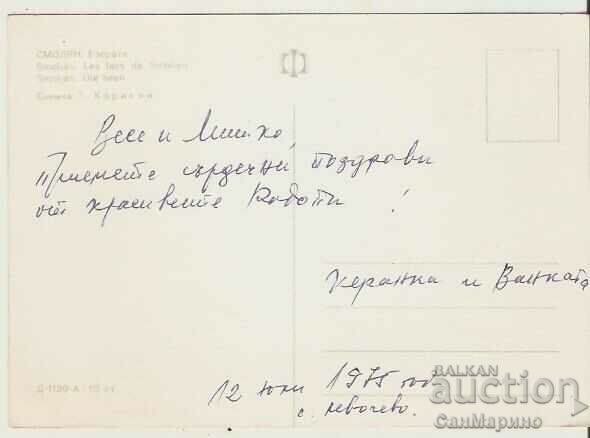 СМОЛЯН. Езерата
Smolian. Les lacs de Smolian
Снимка
Веси и Мишко,
Приемете сърдечни поздрави
от красивите Родопи!
Керанка и Ванката
12 юни 1975 год.
с. Левочево.
Д-1190-А / 10 ст.
BALKAN
auction
СанМарино